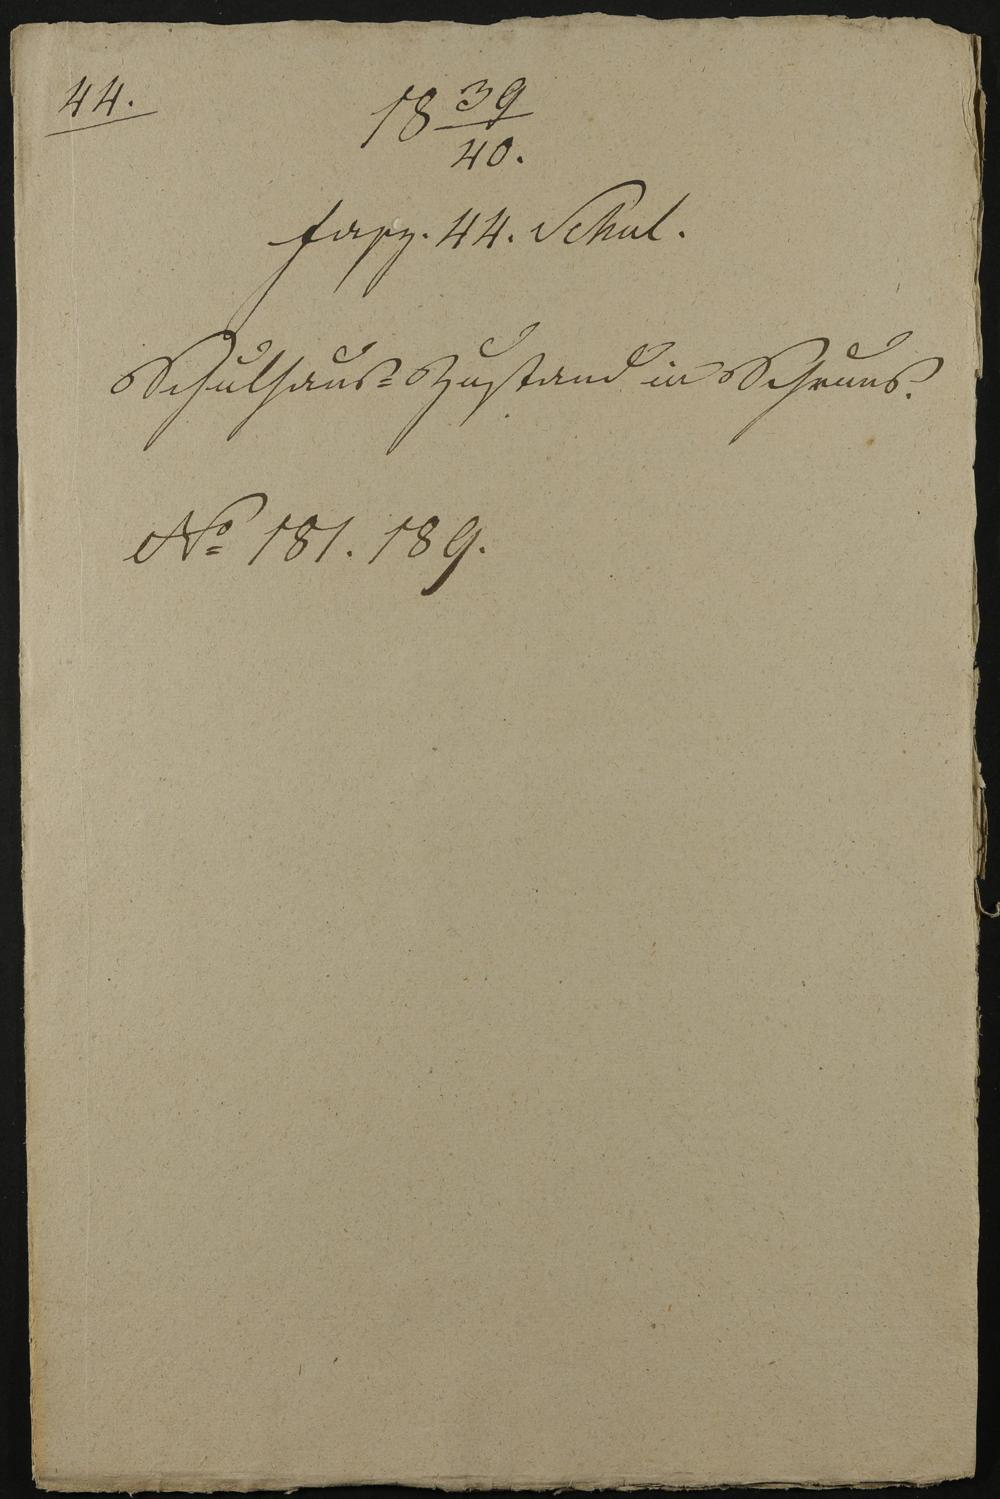 44.
18 39/40.
Fasz. 44. Schul.
Schulhaus=Zustand in Schruns.
No 181. 189.